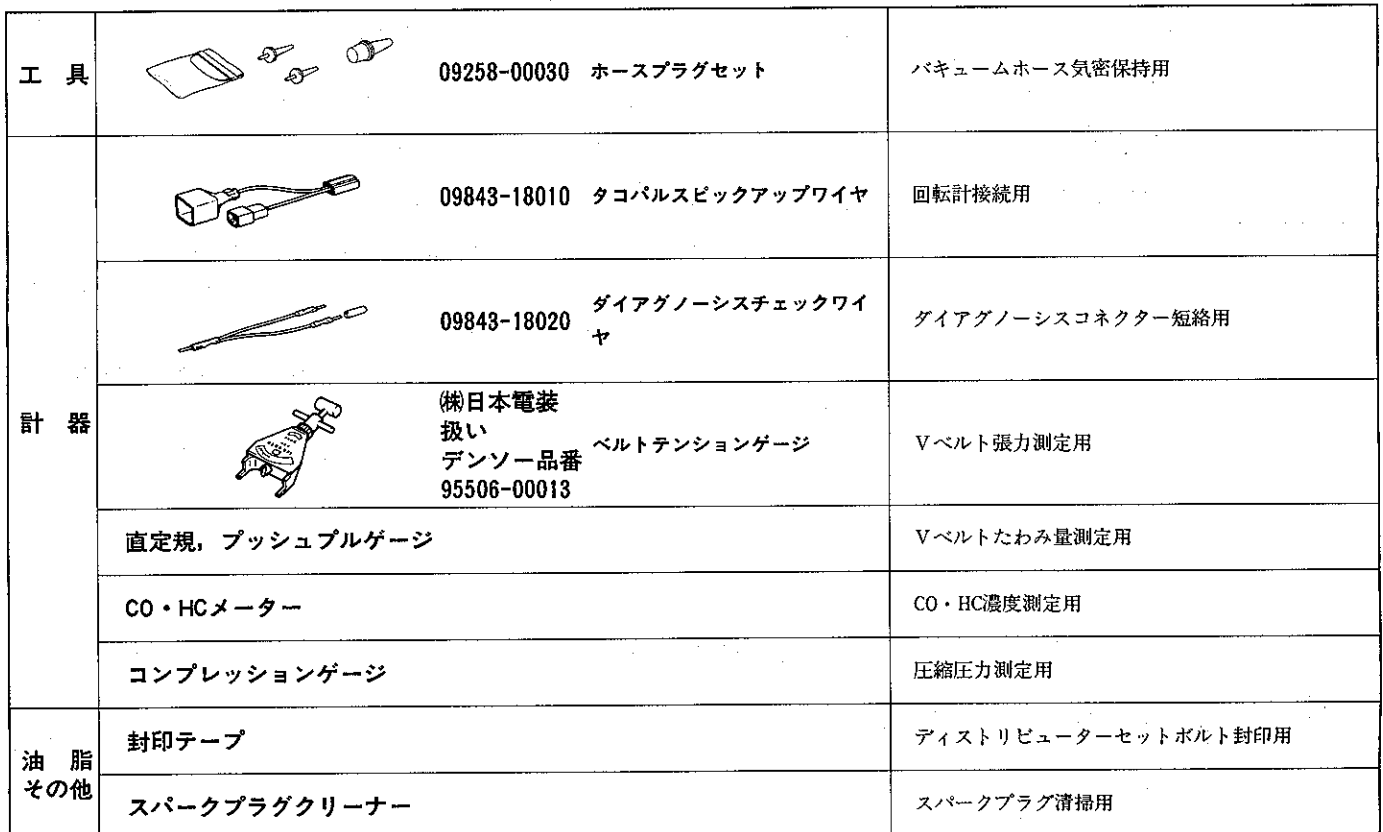 工 具
09258-00030 ホースプラグセット バキュームホース気密保持用
計 器
09843-18010 タコパルスピックアップワイヤ 回転計接続用
09843-18020 ダイアグノーシスチェックワイ
ヤ
ダイアグノーシスコネクター短絡用
㈱日本電装
扱い
デンソー品番
95506-00013
ベルトテンションゲージ Vベルト張力測定用
直定規,プッシュプルゲージ Vベルトたわみ量測定用
CO・HCメーター CO・HC濃度測定用
コンプレッションゲージ 圧縮圧力測定用
油 脂
その他
封印テープ ディストリビューターセットボルト封印用
スパークプラグクリーナー スパークプラグ清掃用